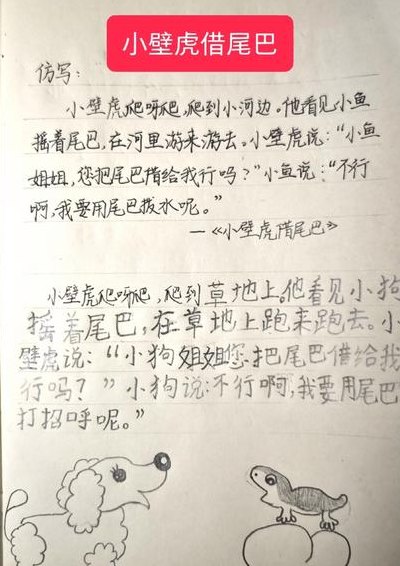 小壁虎借尾巴
仿写：
小壁虎爬呀爬，爬到小河边。他看见小鱼
摇着尾巴，在河里游来游去。小壁虎说：“小鱼
姐姐，您把尾巴借给我行吗？”小鱼说：“不行
啊，我要用尾巴拨水呢。”
—《小壁虎借尾巴》
小壁虎爬呀爬，爬到草地上。他看见小狗
摇着尾巴，在草地上跑来跑去。小
壁虎说：“小狗姐姐您把尾巴借给我
行吗？”小狗说：不行啊，我要用尾巴
打招呼呢。”